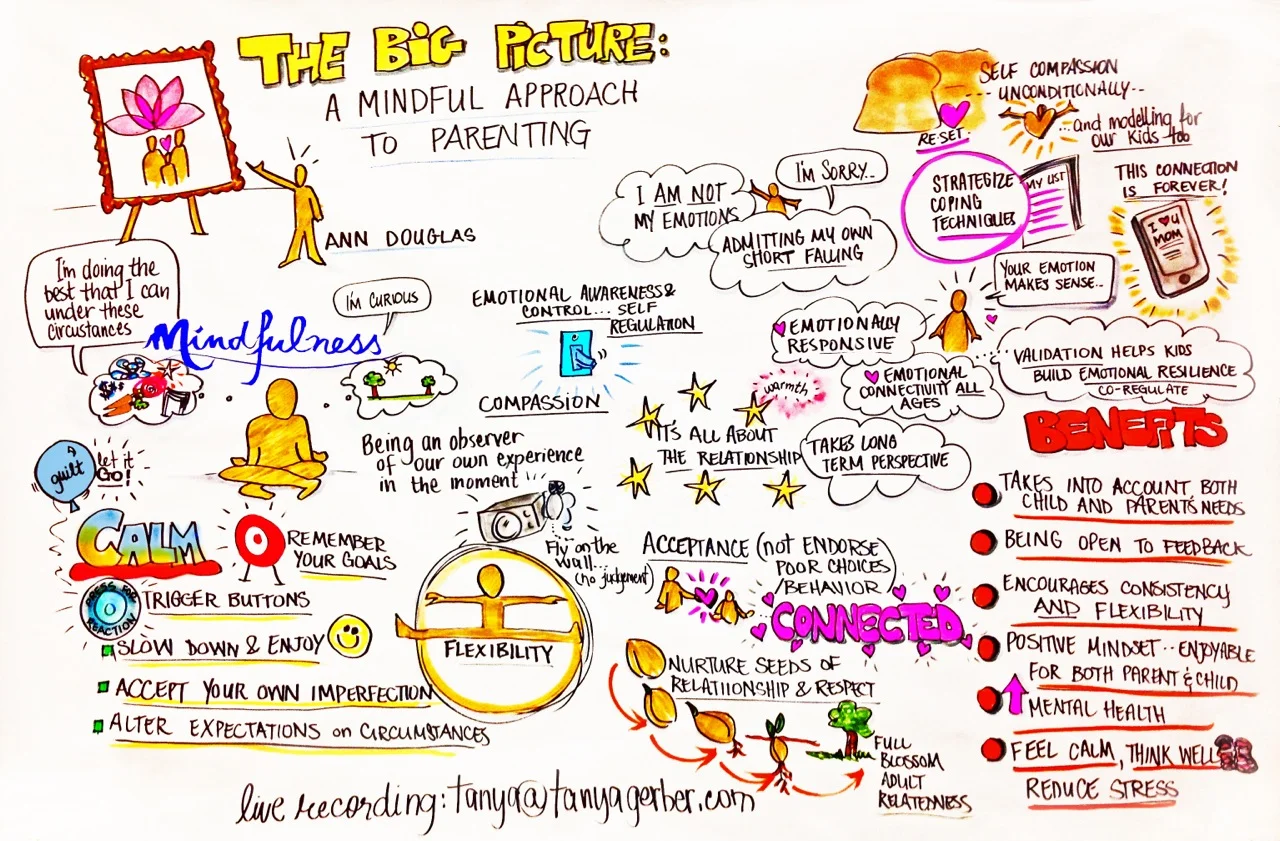 THE BIG PICTURE:
A MINDFUL APPROACH
TO PARENTING
ANN DOUGLAS
I'm doing the
best that I can
under these
circustances
Mindfulness
I'M CURIOUS
guilt
let it
GO!
CALM
REMEMBER
YOUR GOALS
PRESS FOR
REACTION
TRIGGER BUTTONS
SLOW DOWN & ENJOY
ACCEPT YOUR OWN IMPERFECTION
ALTER EXPECTATIONS on CIRCUMSTANCES
EMOTIONAL AWARENESS &
CONTROL... SELF
REGULATION
COMPASSION
Being an observer
of our own experience
in the moment
Fly on the
wall...
(no judgement)
FLEXIBILITY
I AM NOT
MY EMOTIONS
I'M SORRY...
ADMITTING MY OWN
SHORT FALLING
EMOTIONALLY
RESPONSIVE
EMOTIONAL
CONNECTIVITY ALL
AGES
warmth
IT'S ALL ABOUT
THE RELATIONSHIP
TAKES LONG
TERM PERSPECTIVE
ACCEPTANCE (not ENDORSE
POOR CHOICES
/BEHAVIOR)
CONNECTED
NURTURE SEEDS OF
RELATIIONSHIP & RESPECT
FULL
BLOSSOM
ADULT
RELATEDNESS
SELF COMPASSION
UNCONDITIONALLY...
...and modelling for
our Kids too
RESET
STRATEGIZE
COPING
TECHNIQUES
MY LIST
THIS CONNECTION
IS FOREVER!
I ♥ U
MOM
YOUR EMOTION
MAKES SENSE...
VALIDATION HELPS KIDS
BUILD EMOTIONAL RESILIENCE
CO-REGULATE
BENEFITS
TAKES INTO ACCOUNT BOTH
CHILD AND PARENTS NEEDS
BEING OPEN TO FEEDBACK
ENCOURAGES CONSISTENCY
AND FLEXIBILITY
POSITIVE MINDSET... ENJOYABLE
FOR BOTH PARENT & CHILD
MENTAL HEALTH
FEEL CALM, THINK WELL
REDUCE STRESS
live recording: tanya@tanyagerber.com